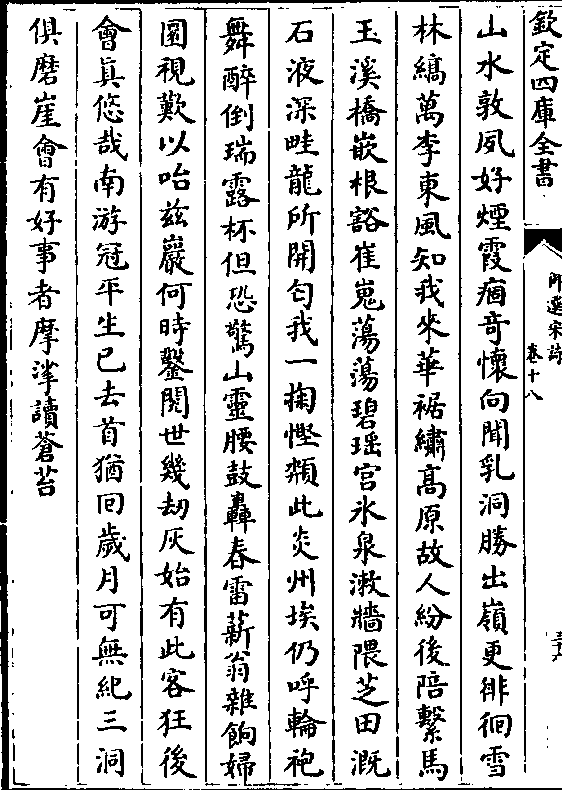 欽定四庫全書
御選宋詩
卷十八
山水敦夙好煙霞痼竒懷向聞乳洞勝出嶺更徘徊雪
林縞萬李東風知我來華裾繡髙原故人紛後陪繫馬
玉溪橋嵌根豁崔嵬蕩蕩碧瑶宫氷泉漱牆隈芝田溉
石液深畦龍所開匄我一掬慳頮此炎州埃仍呼輪袍
舞醉倒瑞露杯但恐驚山靈腰鼓轟春雷薪翁雜餉婦
圜視歎以咍兹巖何時鑿閱世幾刼灰始有此客狂後
會真悠哉南游冠平生已去首猶回歲月可無紀三洞
俱磨崖會有好事者摩挲讀蒼苔